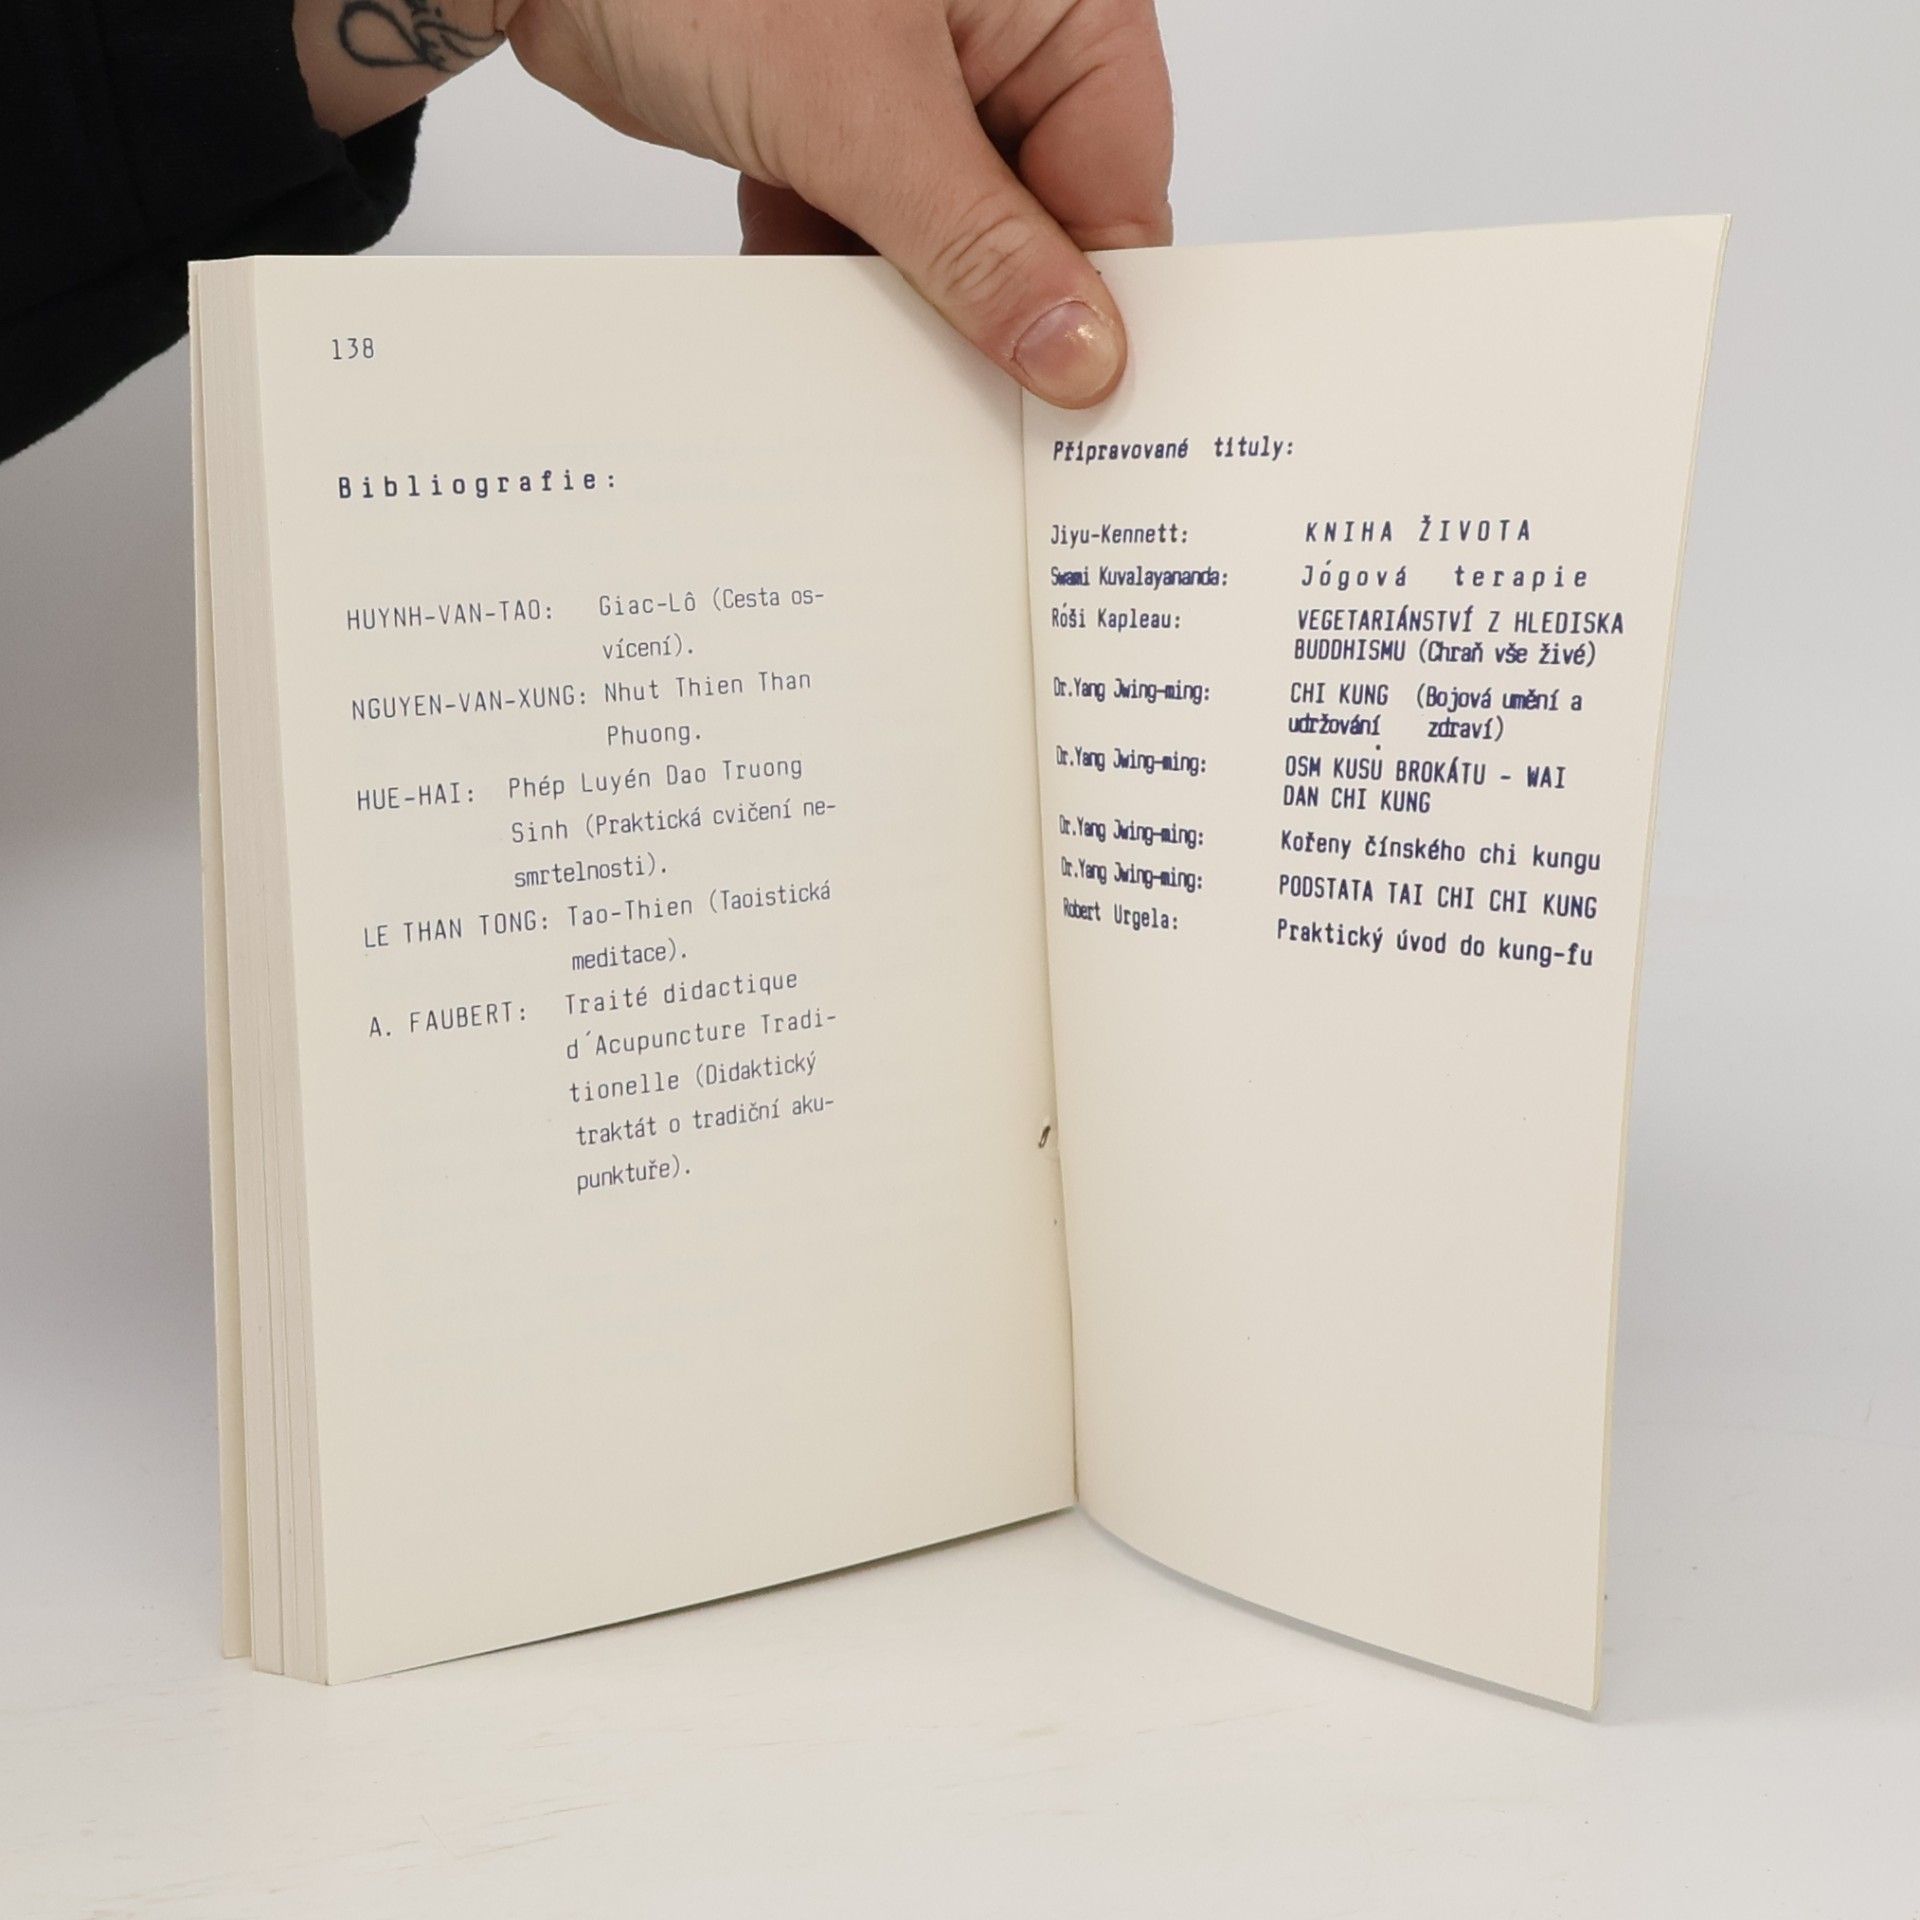 138
Bibliografie:
HUYNH-VAN-TAO: Giac-Lô (Cesta os-
vícení).
NGUYEN-VAN-XUNG: Nhut Thien Than
Phuong.
HUE-HAI: Phép Luyén Dao Truong
Sinh (Praktická cvičení ne-
smrtelnosti).
LE THAN TONG: Tao-Thien (Taoistická
meditace).
A. FAUBERT: Traité didactique
d´Acupuncture Tradi-
tionelle (Didaktický
traktát o tradiční aku-
punktuře).
Připravované tituly:
Jiyu-Kennett: KNIHA ŽIVOTA
Swami Kuvalayananda: Jógová terapie
Róši Kapleau: VEGETARIÁNSTVÍ Z HLEDISKA
BUDDHISMU (Chraň vše živé)
Dr.Yang Jwing-ming: CHI KUNG (Bojová umění a
udržování zdraví)
Dr.Yang Jwing-ming: OSM KUSŮ BROKÁTU - WAI
DAN CHI KUNG
Dr.Yang Jwing-ming: Kořeny čínského chi kungu
Dr.Yang Jwing-ming: PODSTATA TAI CHI CHI KUNG
Robert Urgela: Praktický úvod do kung-fu